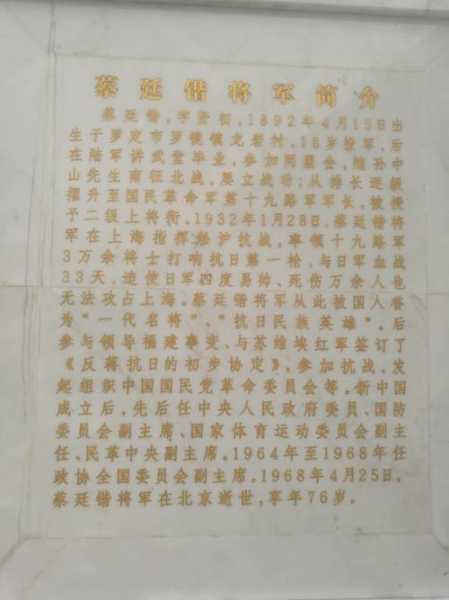 蔡廷锴将军简介
蔡廷锴，字贤初，1892年4月15日出
生于罗定市罗镜镇龙岩村。18岁投军，后
在陆军讲武堂毕业，参加同盟会，随孙中
山先生南征北战，屡立战功；从排长逐级
擢升至国民革命军第十九路军军长，被授
予二级上将衔。1932年1月28日，蔡廷锴将
军在上海指挥淞沪抗战，率领十九路军
3万余将士打响抗日第一枪，与日军血战
33天，迫使日军四度易帅、死伤万余人也
无法攻占上海。蔡廷锴将军从此被国人誉
为“一代名将”、“抗日民族英雄”。后
参与领导福建事变、与苏维埃红军签订了
《反蒋抗日的初步协定》，参加抗战，发
起组织中国国民党革命委员会等。新中国
成立后，先后任中央人民政府委员、国防
委员会副主席、国家体育运动委员会副主
任、民革中央副主席。1964年至1968年任
政协全国委员会副主席。1968年4月25日，
蔡廷锴将军在北京逝世，享年76岁。